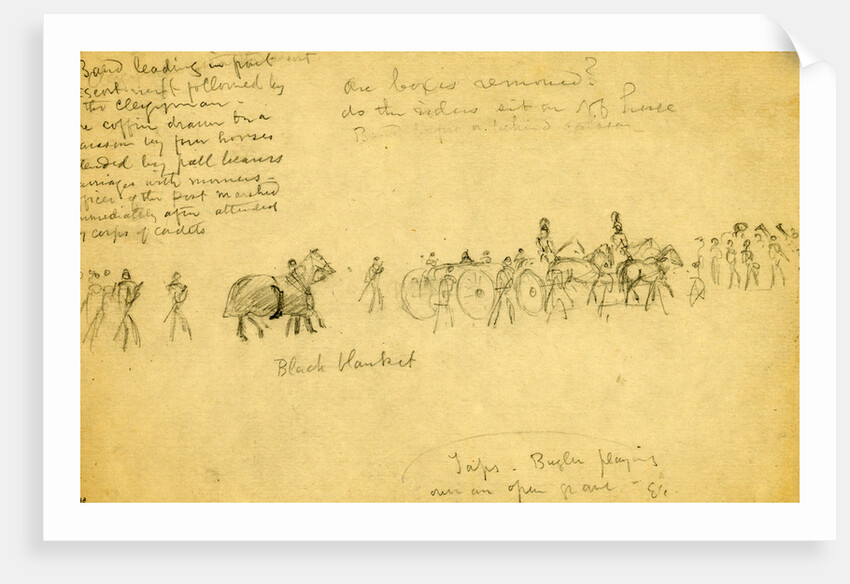 Band leading in front
escort next followed by
the Clergyman -
coffin drawn by a
caisson by four horses
attended by pall bearers
carriages with mourners -
officers of the Post marched
immediately after attended
by corps of cadets
are boxes removed?
do the riders sit on off horse
Band before or behind
Black blanket
Taps - Bugler playing
over an open grave - Etc.